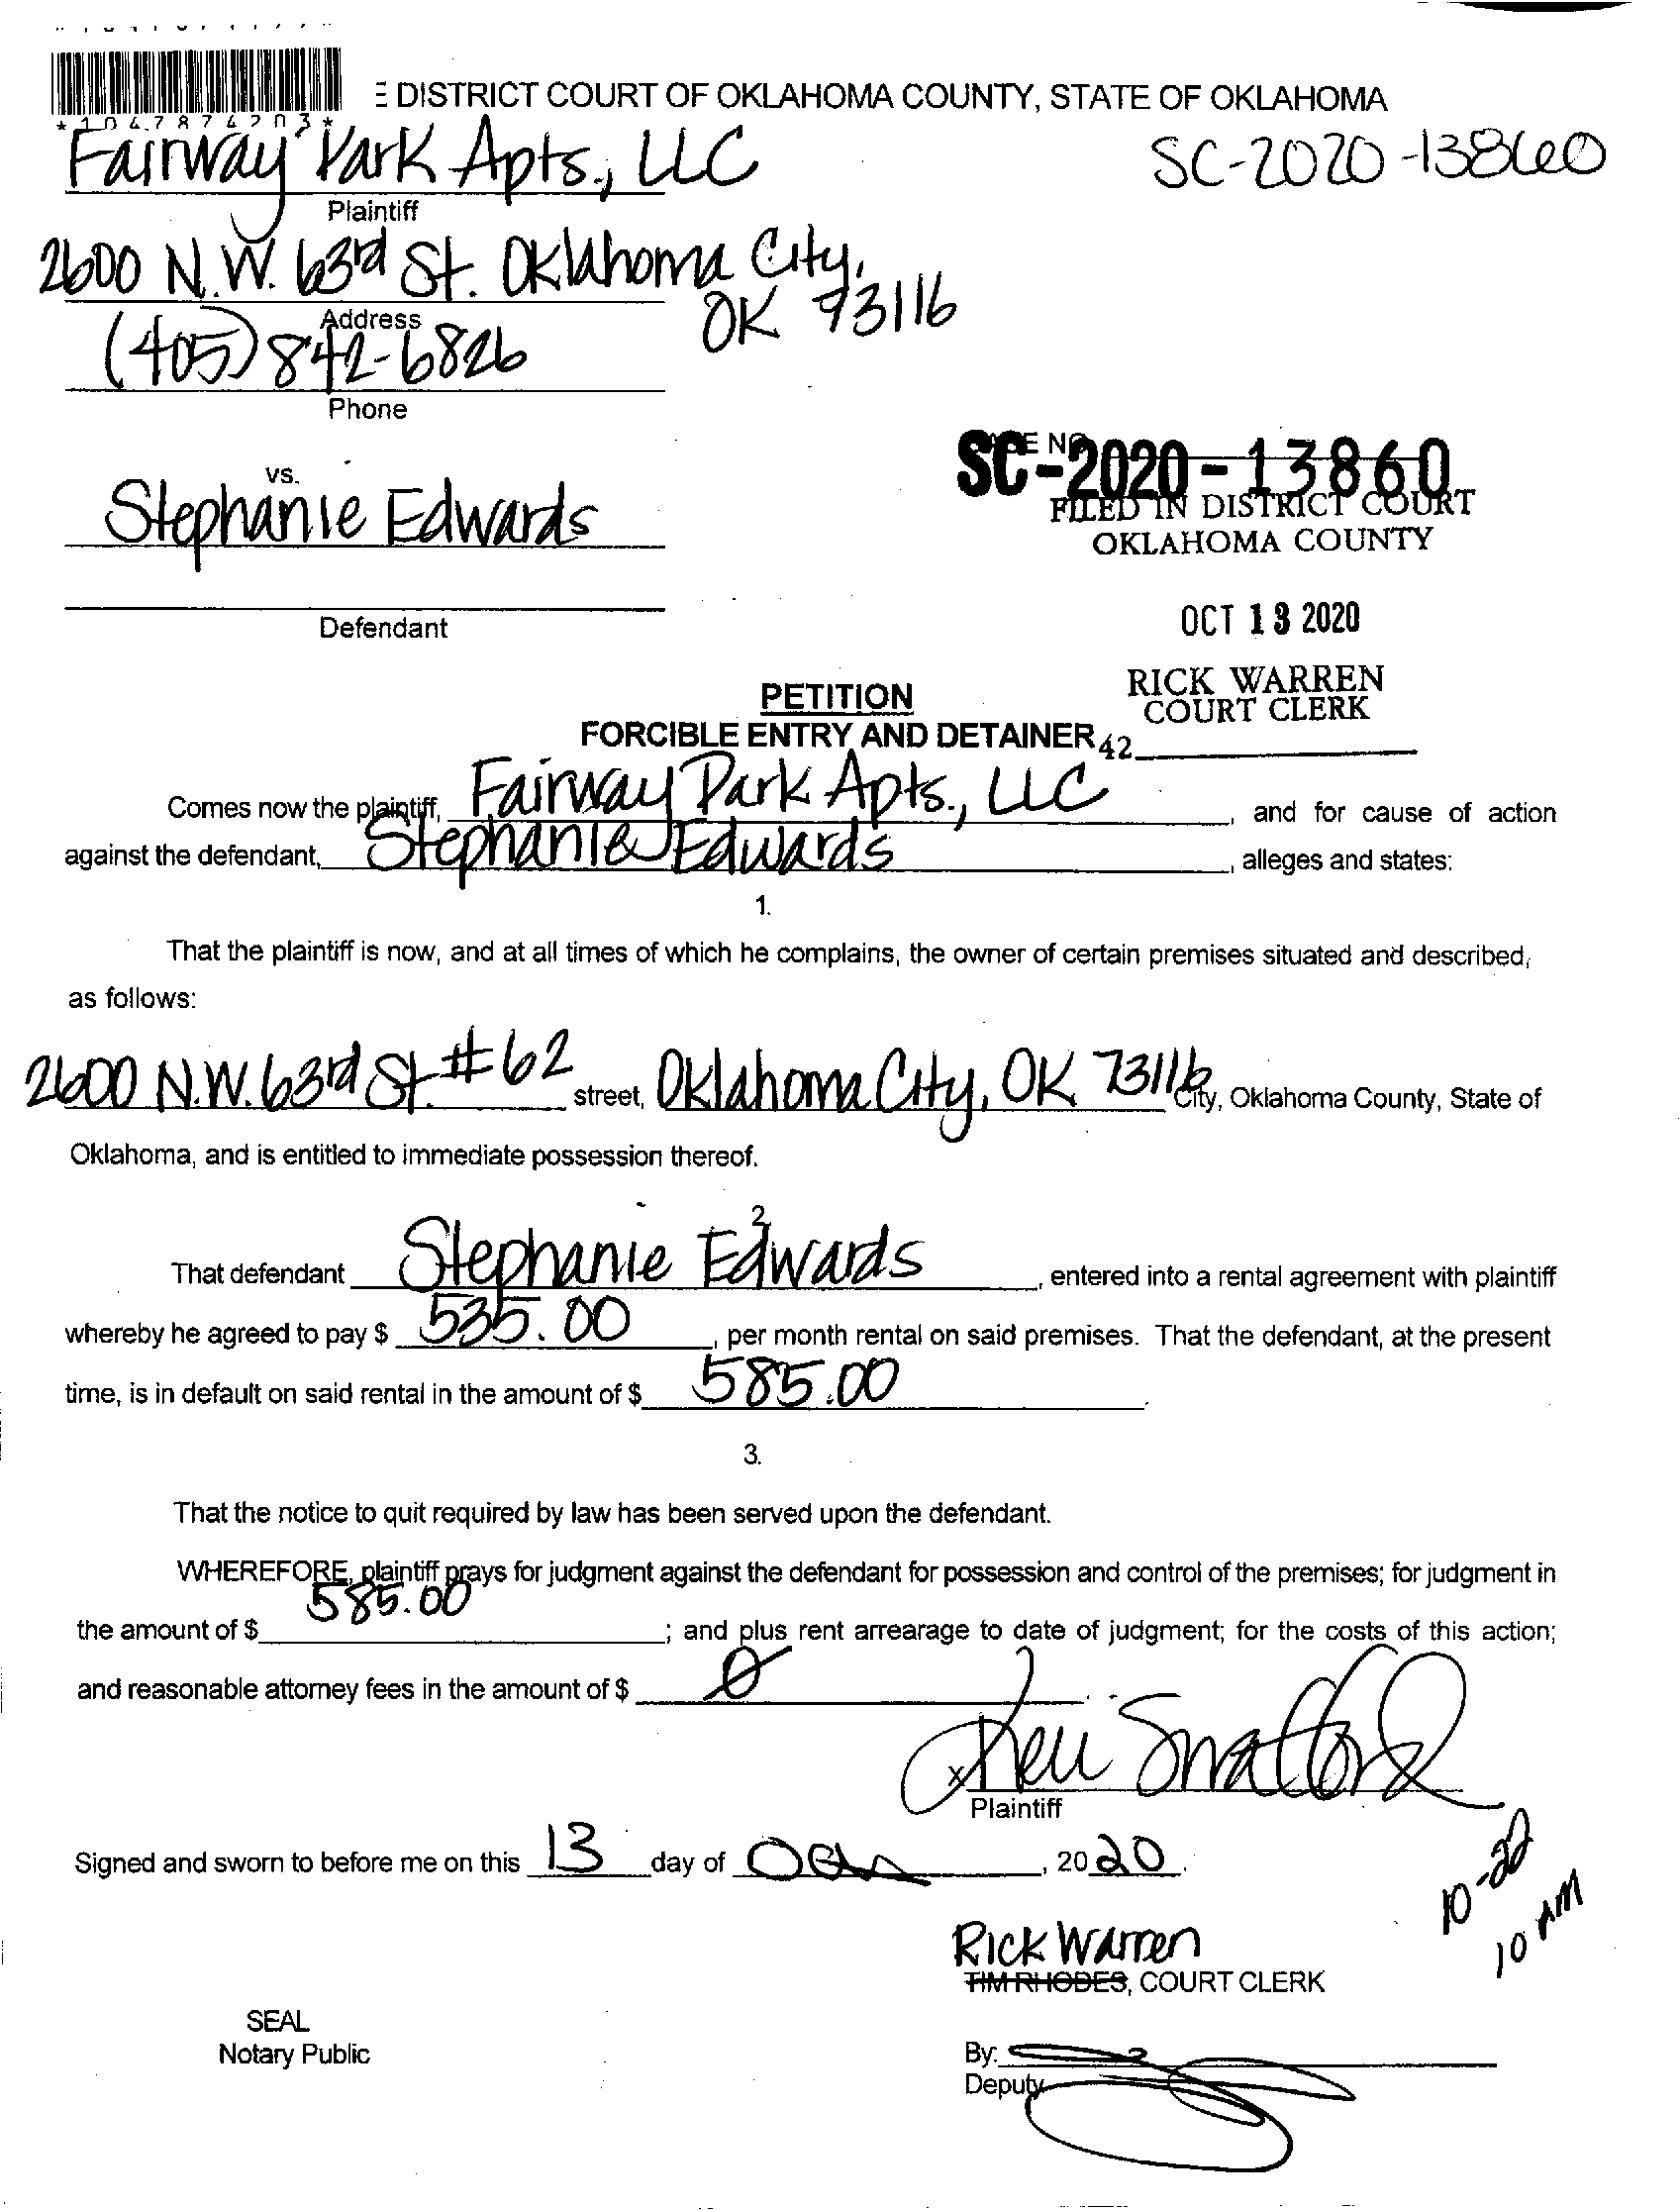 E DISTRICT COURT OF OKLAHOMA COUNTY, STATE OF OKLAHOMA
*1047874203*
Fairway Park Apts., LLC
SC-2020-13860
Plaintiff
2600 N.W. 63rd St. Oklahoma City,
OK 73116
Address
(405) 842-6826
Phone
vs.
Stephanie Edwards
SC-2020-13860
FILED IN DISTRICT COURT
OKLAHOMA COUNTY
Defendant
OCT 13 2020
RICK WARREN
COURT CLERK
42
PETITION
FORCIBLE ENTRY AND DETAINER
Comes now the plaintiff, Fairway Park Apts., LLC, and for cause of action
against the defendant, Stephanie Edwards, alleges and states:
1.
That the plaintiff is now, and at all times of which he complains, the owner of certain premises situated and described,
as follows:
2600 N.W. 63rd St. #62 street, Oklahoma City, OK 73116 City, Oklahoma County, State of
Oklahoma, and is entitled to immediate possession thereof.
2.
That defendant Stephanie Edwards, entered into a rental agreement with plaintiff
whereby he agreed to pay $ 535.00, per month rental on said premises. That the defendant, at the present
time, is in default on said rental in the amount of $ 585.00.
3.
That the notice to quit required by law has been served upon the defendant.
WHEREFORE, plaintiff prays for judgment against the defendant for possession and control of the premises; for judgment in
the amount of $ 585.00; and plus rent arrearage to date of judgment; for the costs of this action;
and reasonable attorney fees in the amount of $ 0.
x
Plaintiff
Signed and sworn to before me on this 13 day of Oct, 2020.
10-22
10 AM
Rick Warren
TIM RHODES, COURT CLERK
SEAL
Notary Public
By:
Deputy